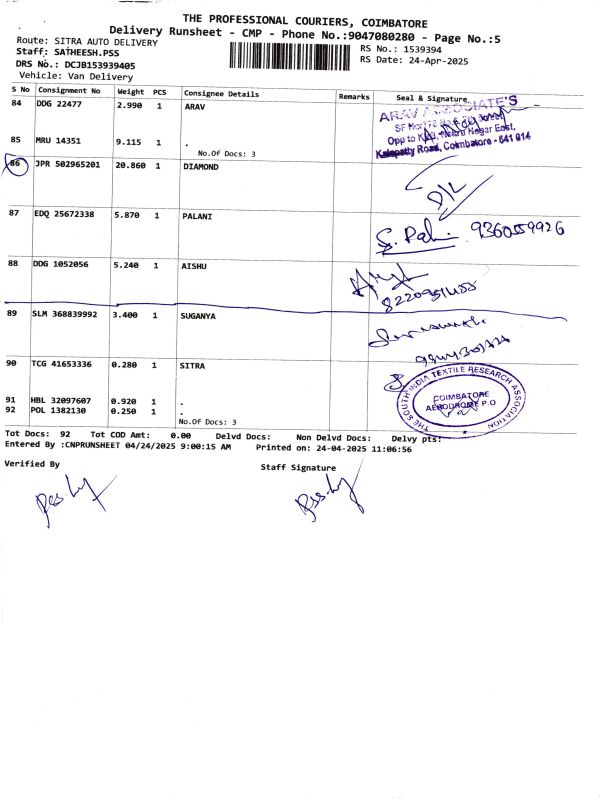 THE PROFESSIONAL COURIERS, COIMBATORE
Delivery Runsheet - CMP - Phone No.:9047080280 - Page No.:5
Route: SITRA AUTO DELIVERY
RS No.: 1539394
Staff: SATHEESH.PSS
RS Date: 24-Apr-2025
DRS No.: DCJB153939405
Vehicle: Van Delivery
S No Consignment No Weight PCS Consignee Details Remarks Seal & Signature
84 DDG 22477 2.990 1 ARAV
ARAV ASSOCIATE'S
Opp to Nehru Nagar East,
Kalapatty Road, Coimbatore - 641 014
85 MRU 14351 9.115 1 .
No.Of Docs: 3
86 JPR 502965201 20.860 1 DIAMOND
D/L
87 EDQ 25672338 5.870 1 PALANI
88 DDG 1052056 5.240 1 AISHU
89 SLM 368839992 3.400 1 SUGANYA
90 TCG 41653336 0.280 1 SITRA
THE SOUTH INDIA TEXTILE RESEARCH ASSOCIATION
COIMBATORE
AERODROME P.O
91 HBL 32097607 0.920 1 .
92 POL 1382130 0.250 1 .
No.Of Docs: 3
Tot Docs: 92 Tot COD Amt: 0.00 Delvd Docs: Non Delvd Docs: Delvy pts:
Entered By :CNPRUNSHEET 04/24/2025 9:00:15 AM Printed on: 24-04-2025 11:06:56
Verified By
Staff Signature